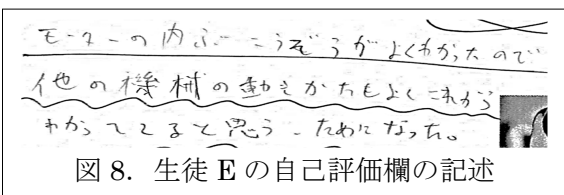 モーターの内ぶこうぞうがよくわかったので
他の機械の動きかたもよくこれから
わかってくると思う。ためになった。
図 8．生徒 E の自己評価欄の記述